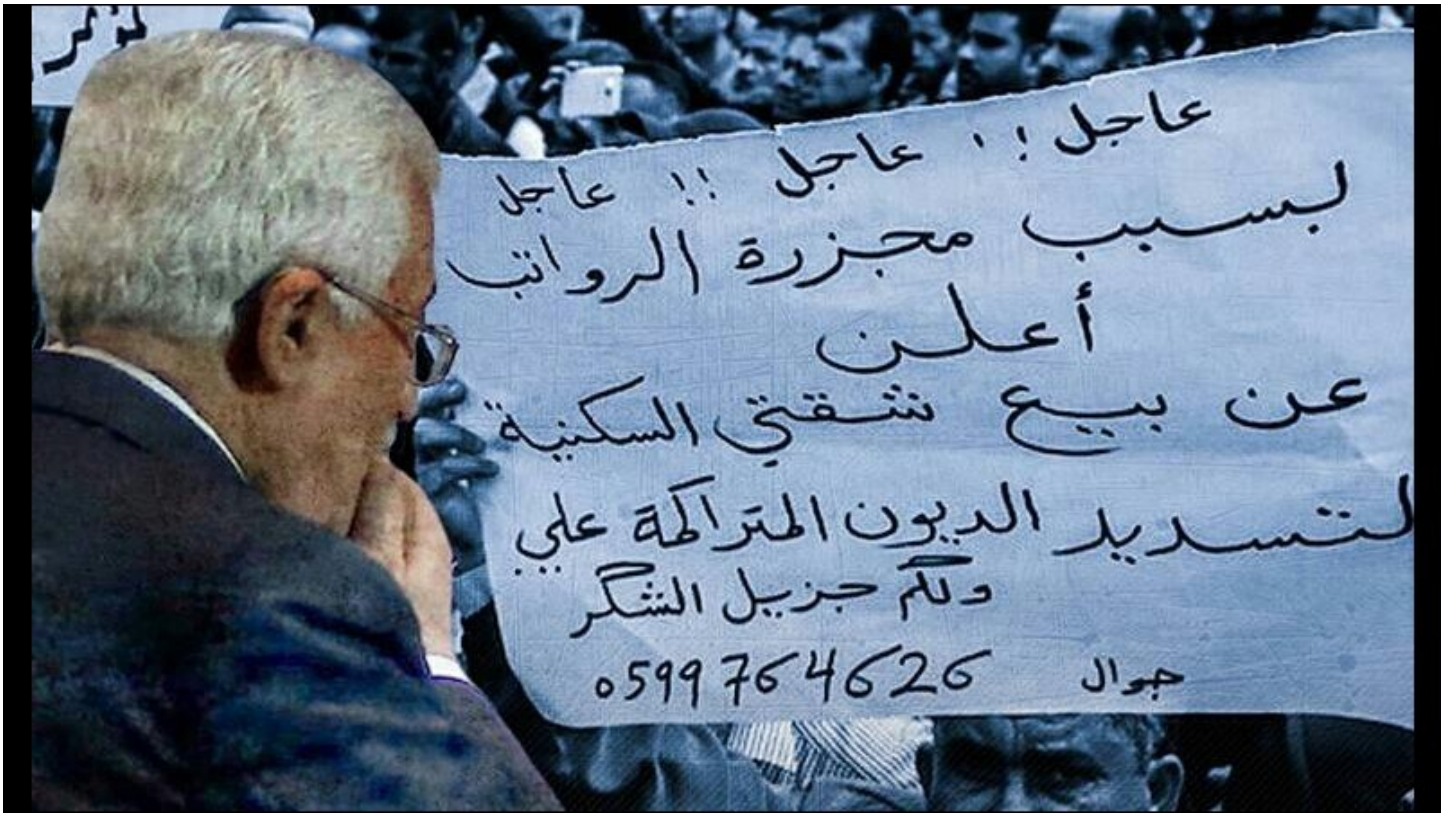 عاجل !! عاجل !! عاجل
لبسبب مجزرة الرواتب
أعلن
عن بيع شقتي السكنية
لتسديد الديون المتراكمة علي
ولكم جزيل الشكر
جوال 0599764626